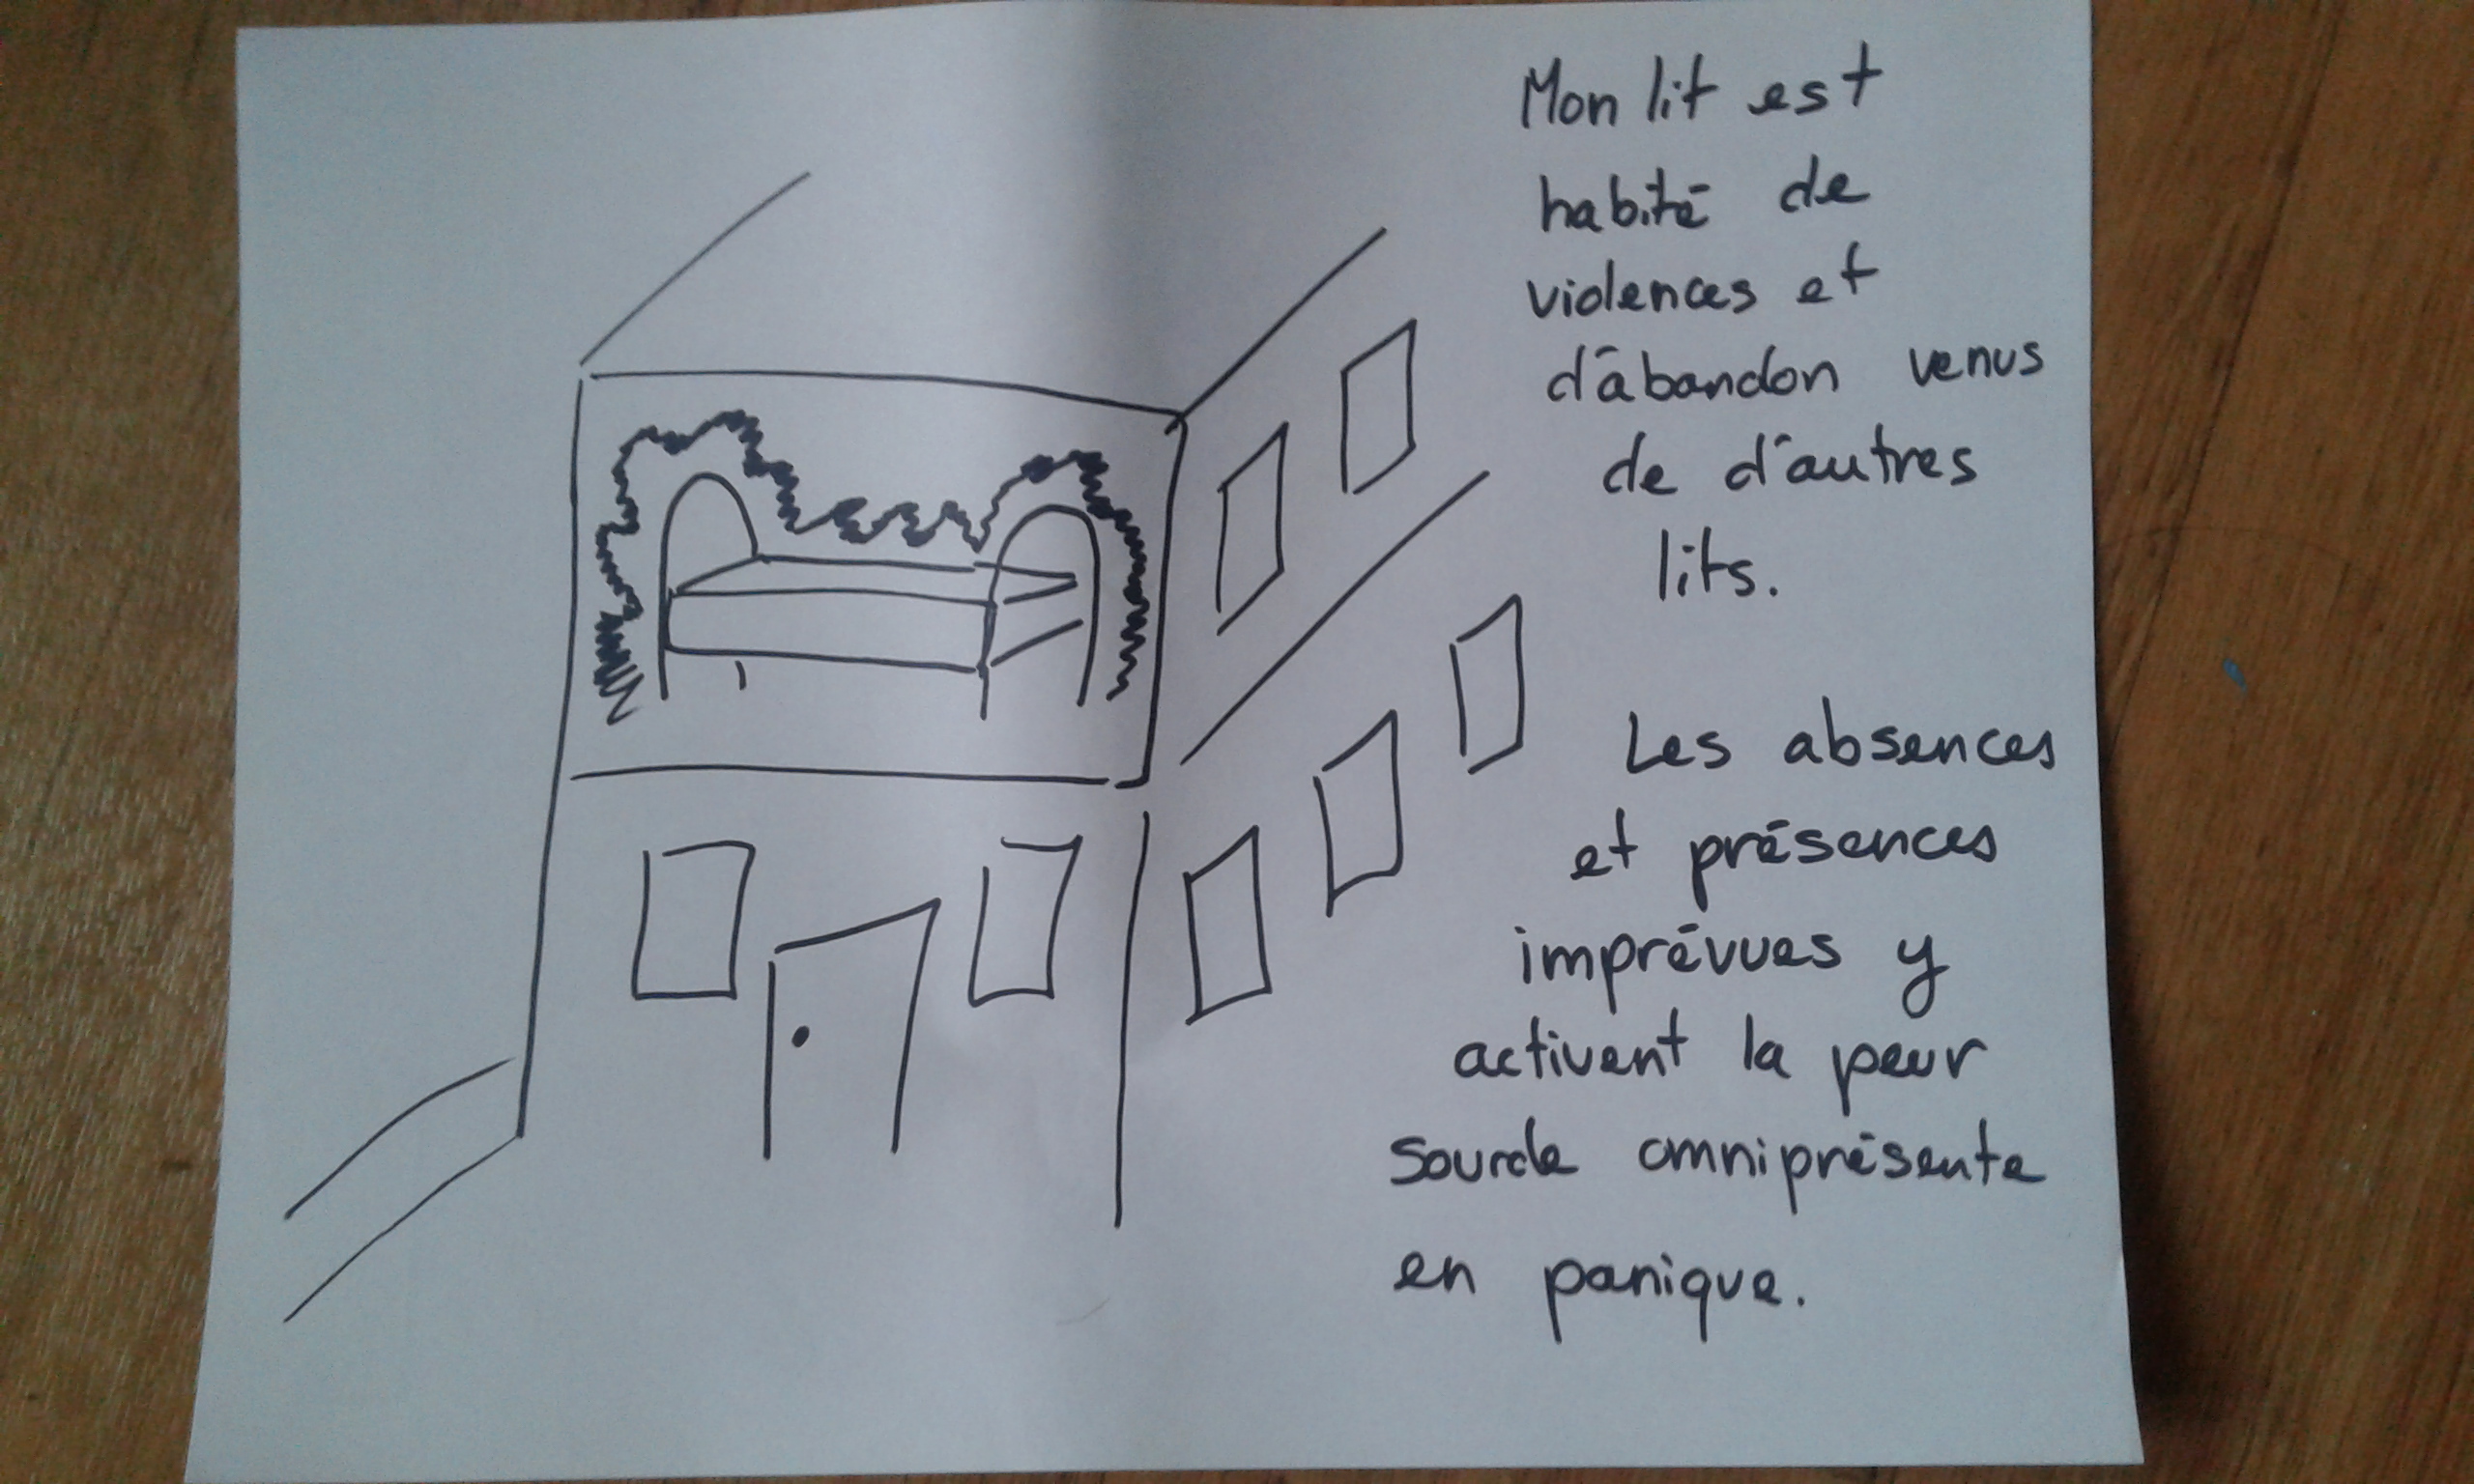 Mon lit est
habité de
violences et
d'abandon venus
de d'autres
lits.
Les absences
et présences
imprévues y
activent la peur
sourde omniprésente
en panique.